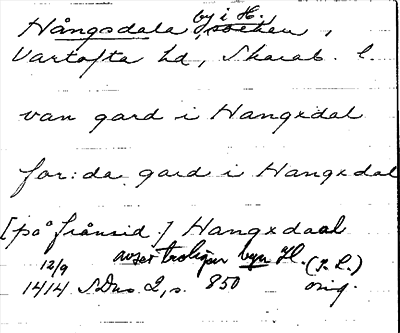 by i H.
Hångsdala socken,
Vartofta hd, Skarab. l.
van gard i Hangxdal
for:da gard i Hangxdal
[på frånsid.] Hangxdaal
avser troligen byn H. (I. L.)
12/9
1414 SDns 2, s. 850 orig.